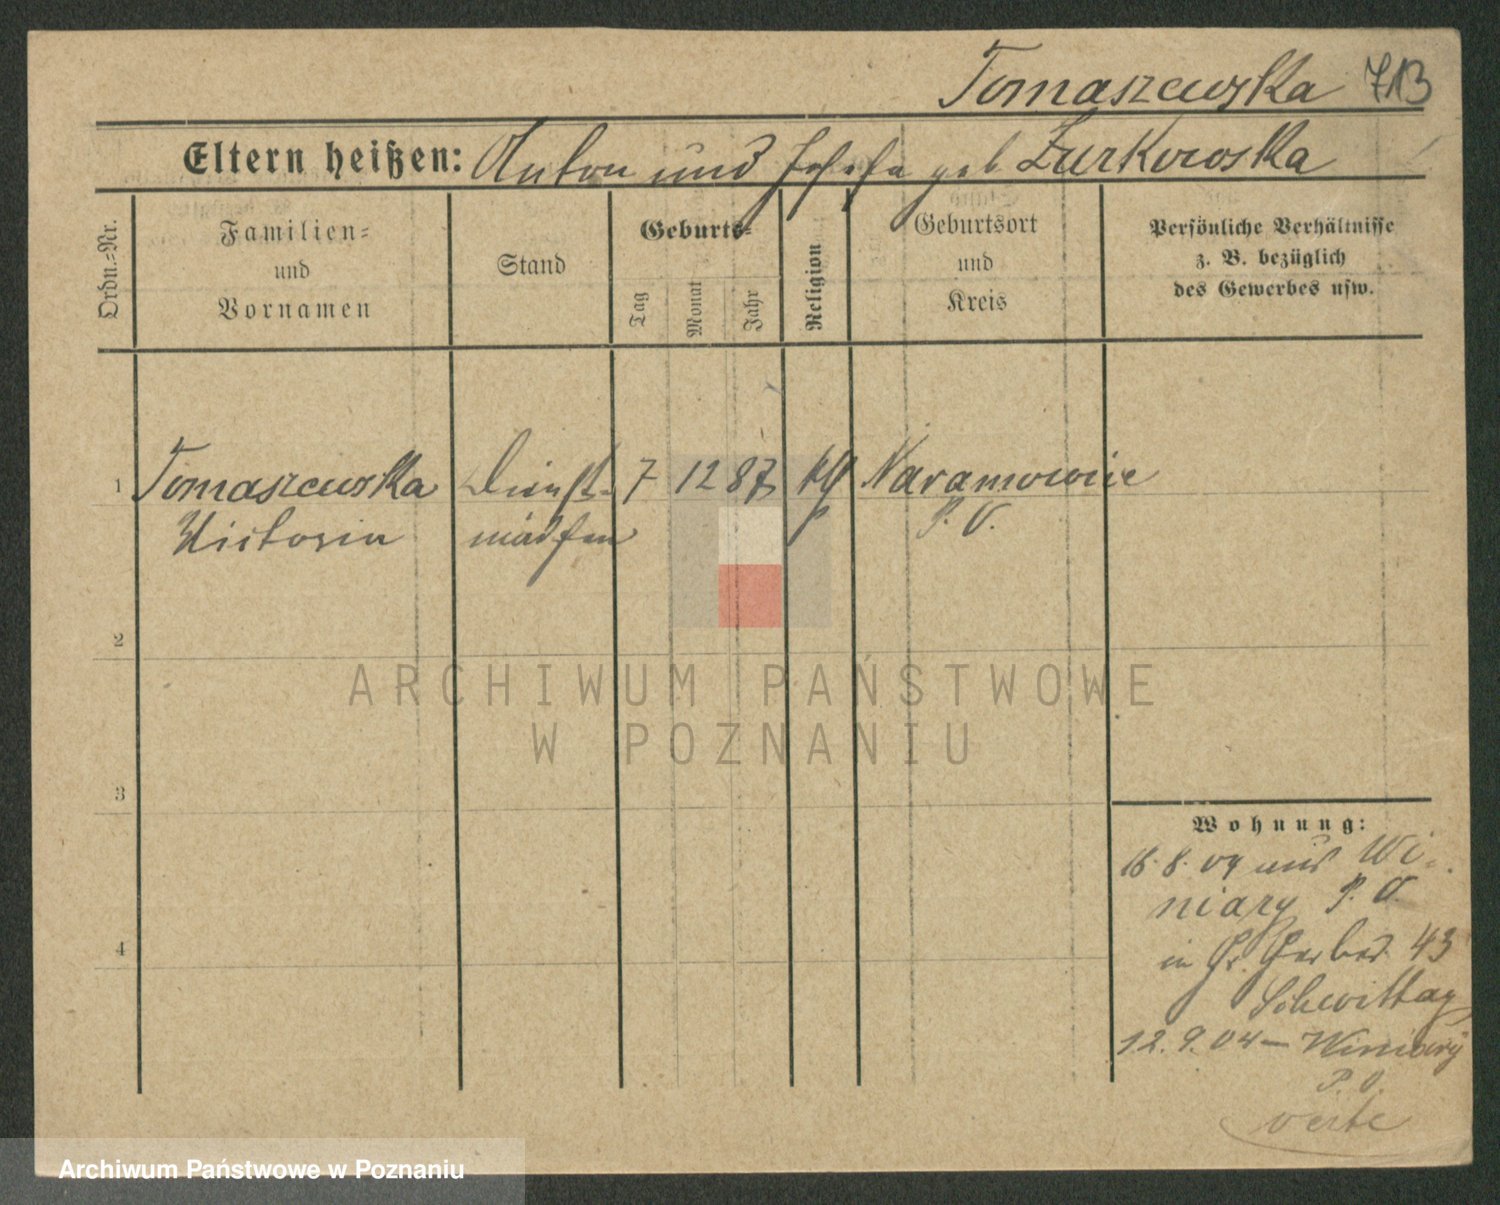 Tomaszewska 713
Eltern heißen: Anton und Josefa geb Żurkowska
Ordn.-Nr.
Familien-
und
Vornamen
Stand
Geburts-
Tag
Monat
Jahr
Religion
Geburtsort
und
Kreis
Persönliche Verhältnisse
z. B. bezüglich
des Gewerbes usw.
1 Tomaszewska Dienst- 7 12 87 kth Naramowice
Victoria mädchen P. O.
2
3
4
Wohnung:
16.8.04 aus Wi-
niary P. O.
in Gr. Gerber 43
Schwittay
12.9.04 – Winiary
P. O.
verte
ARCHIWUM PAŃSTWOWE
W POZNANIU
Archiwum Państwowe w Poznaniu